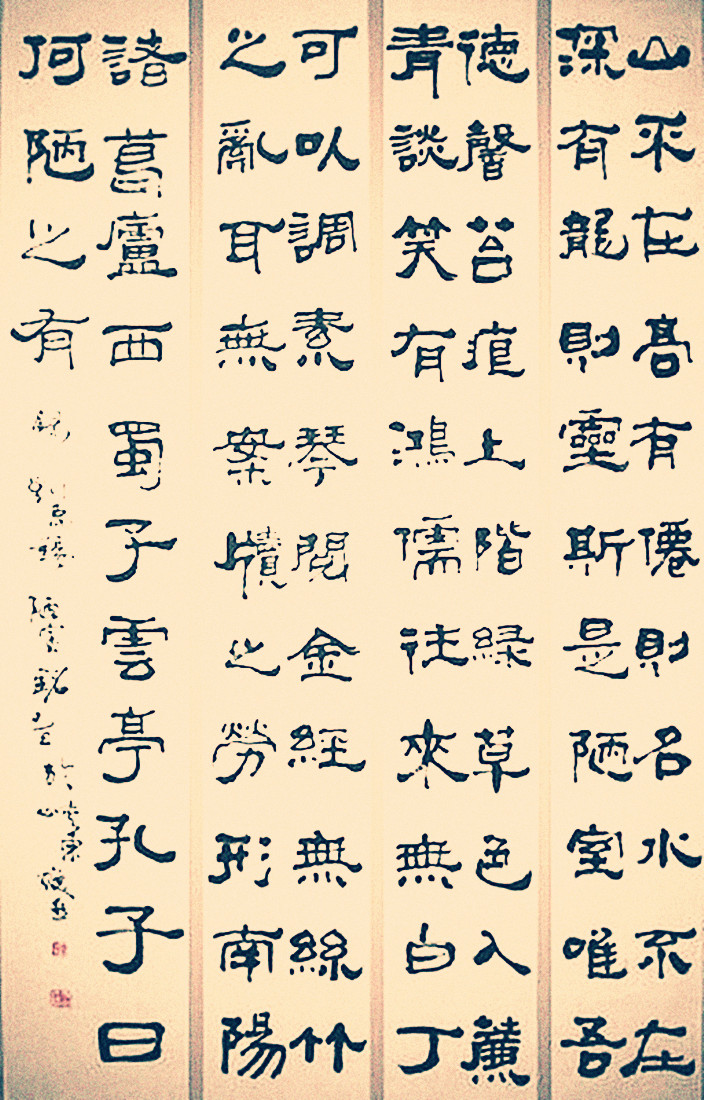 山不在高有僊則名水不在
深有龍則靈斯是陋室唯吾
德馨苔痕上階緑草色入簾
青談笑有鴻儒往來無白丁
可㕥調素琴閱金經無絲竹
之亂耳無案牘之勞形南陽
諸葛廬西蜀子雲亭孔子曰
何陋之有
錄劉禹錫陋室銘書於